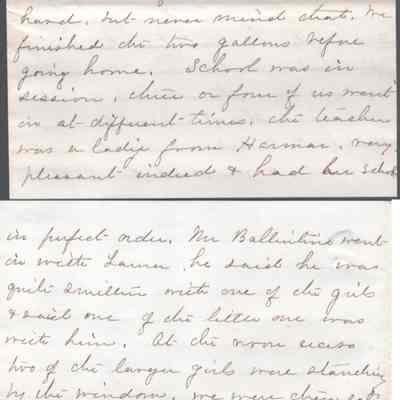 hard, but never mind that. We
finished the two gallons before
going home. School was in
session, three or four of us went
in at different times, the teacher
was a lady from Harmar, very
pleasant indeed & had her school
in perfect order. Mr Ballintine went
in with Laura, he said he was
quite smitten with one of the girls
& said one of the little one was
with him. At the noon recess
two of the larger girls were standing
by the window, we were